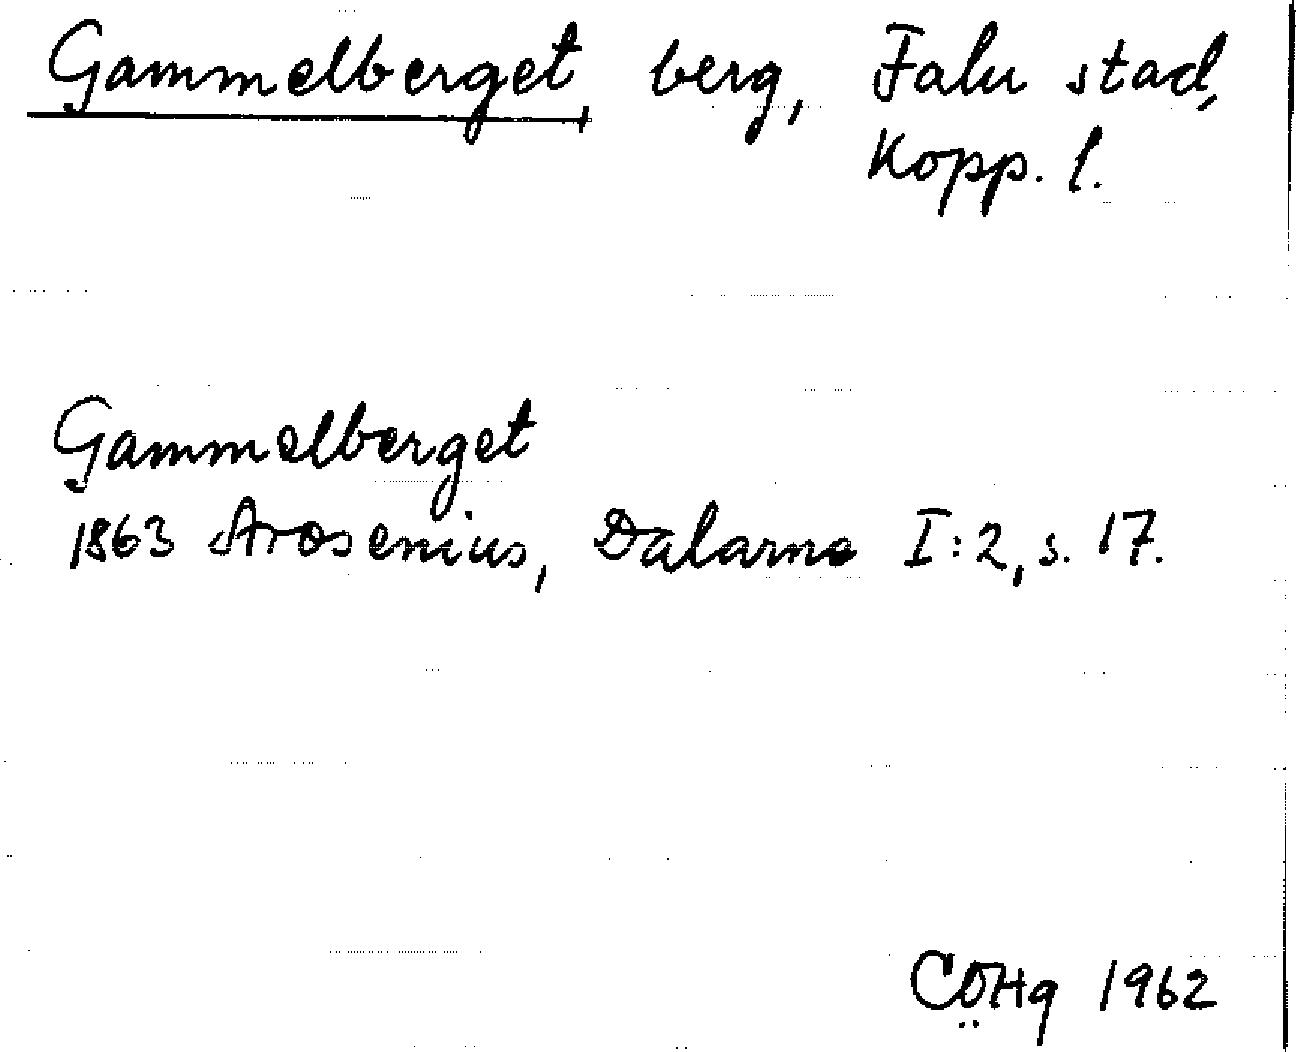 Gammelberget, berg, Falu stad,
Kopp. l.
Gammelberget
1863 Arosenius, Dalarne I:2, s. 17.
CÖHg 1962